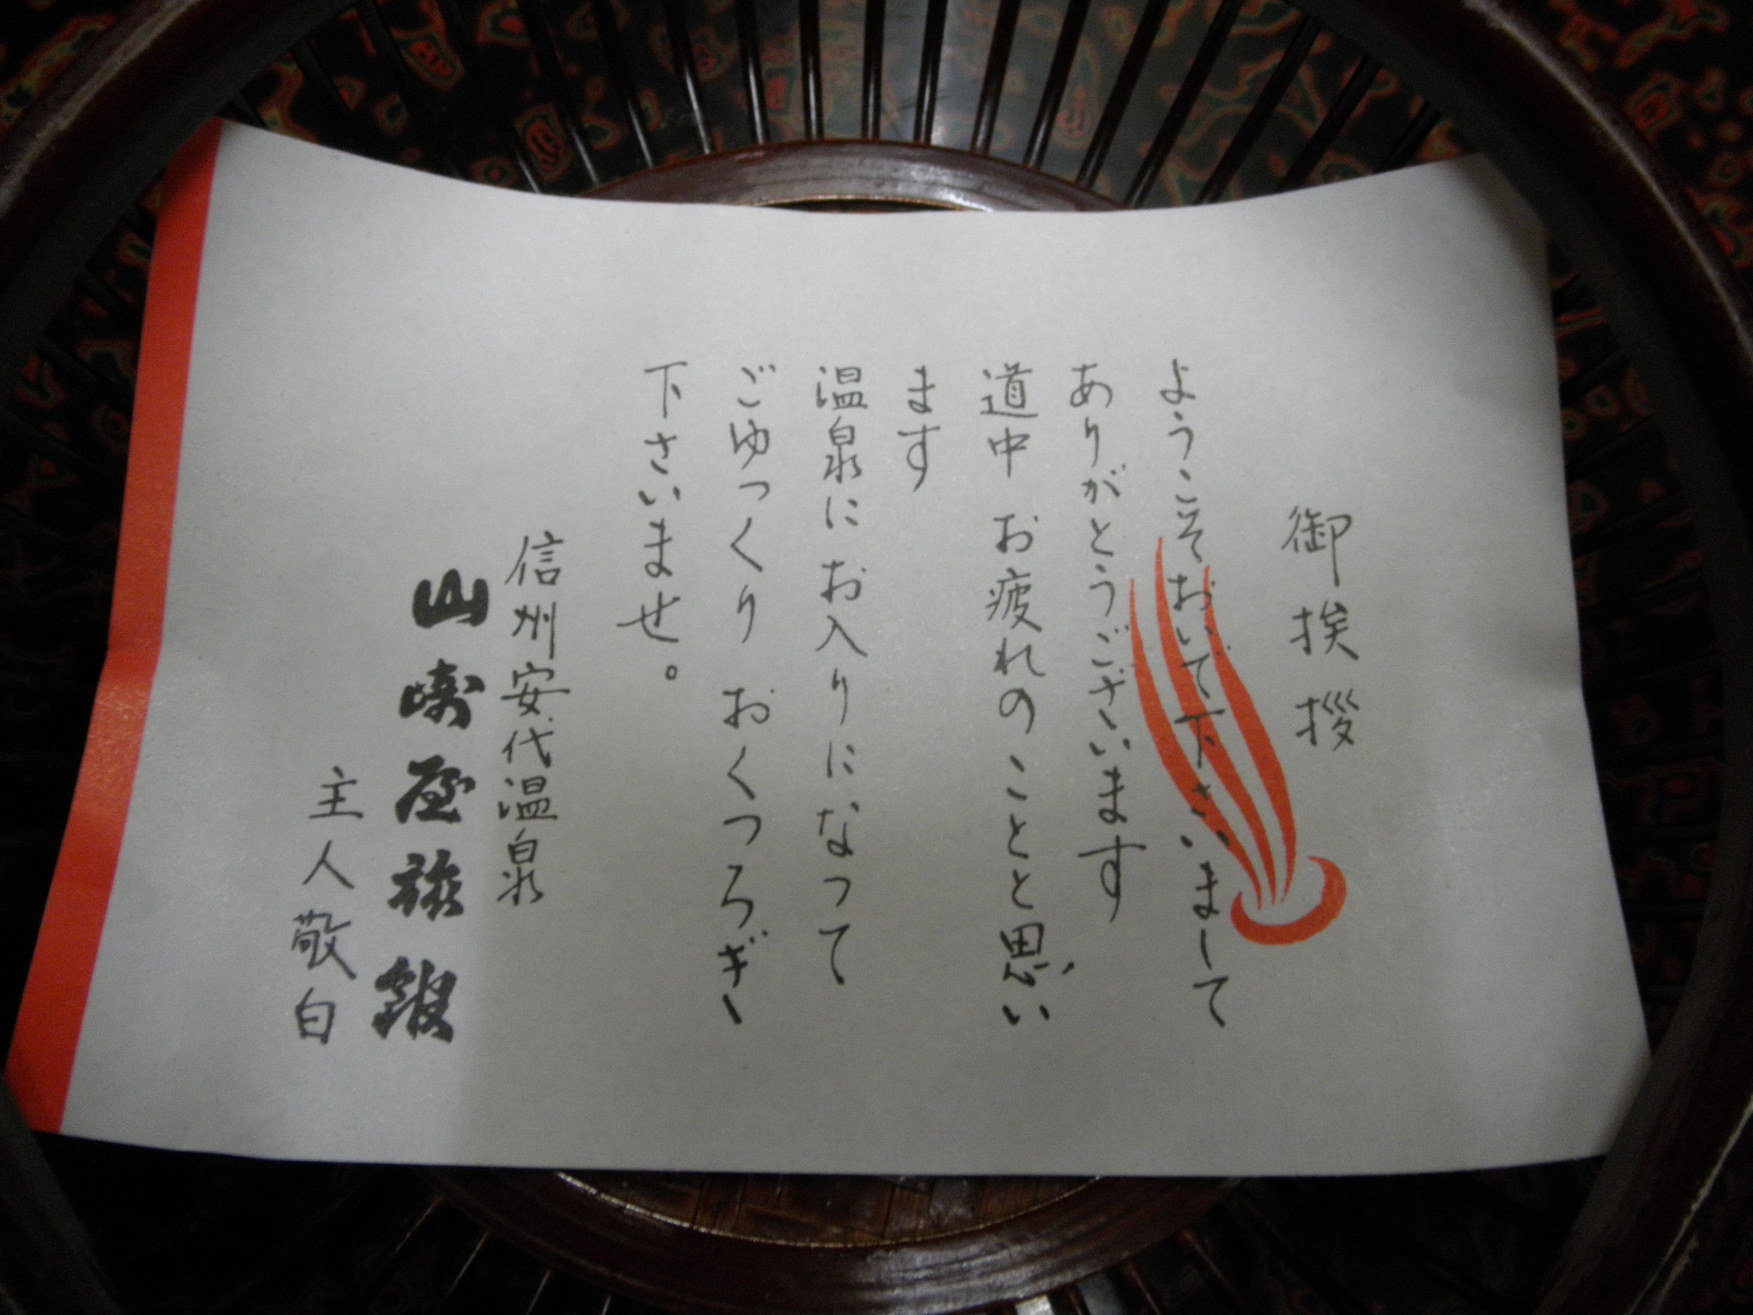 御挨拶
ようこそおいで下さいまして
ありがとうございます
道中 お疲れのことと思い
ます
温泉に お入りになって
ごゆっくり おくつろぎ
下さいませ。
信州安代温泉
山崎屋旅館
主人敬白